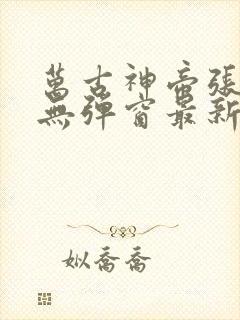 萬古神帝張
無彈窗最新
姒喬喬